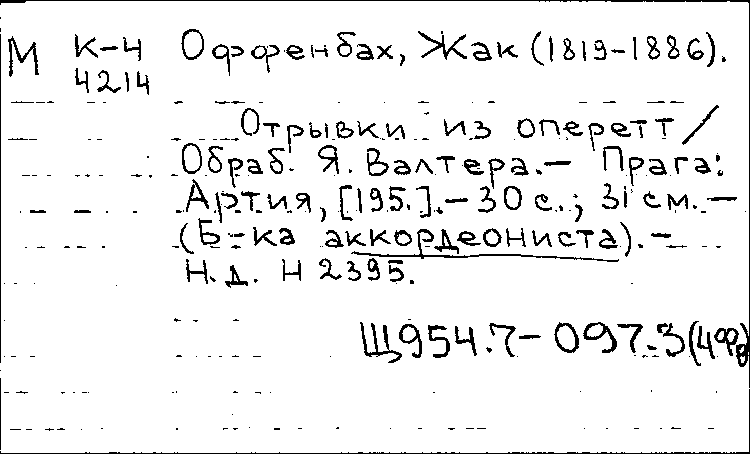 М К-4 Оффенбах, Жак (1819-1886).
4214
Отрывки из оперетт /
Обраб. Я. Валтера.- Прага:
Артия, [195.].- 30 с.; 31 см. -
(Б-ка аккордеониста).-
Н.д. Н 2395.
Щ954.7-097.3(4Фр)